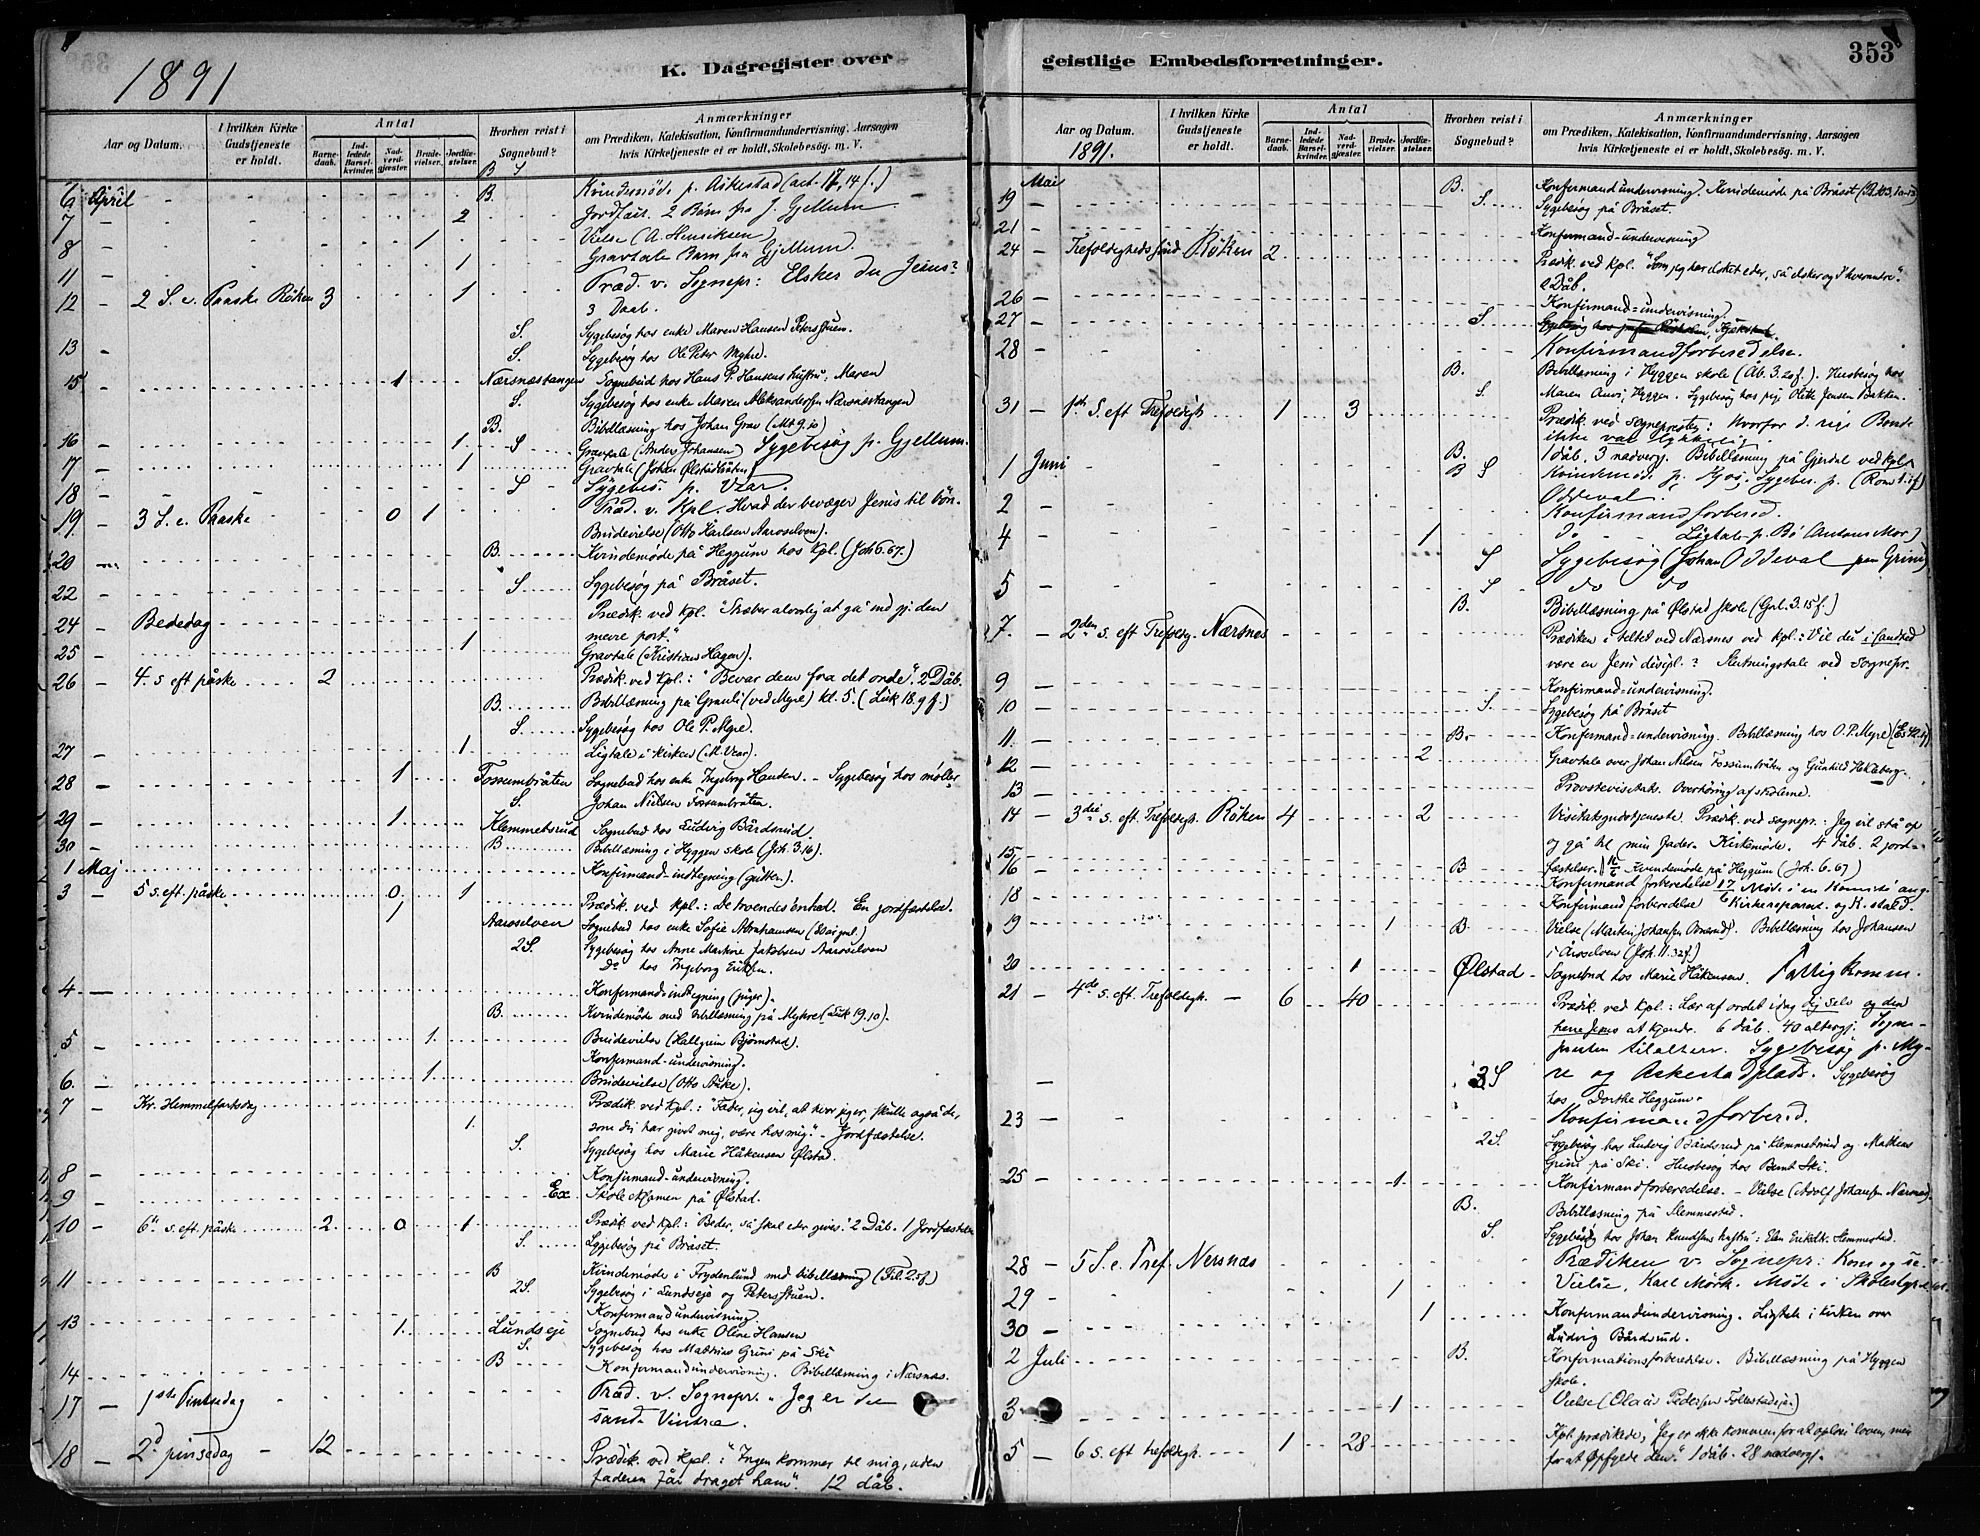 1891
K. Dagregister over
Aar og Datum.
I hvilken Kirke Gudstjeneste er holdt.
Antal
Barnedaab.
Indledede Barselkvinder.
Nadverdgjæster.
Brudevielser.
Jordfæstelser.
Hvorhen reist i Sognebud?
Anmærkninger
om Prædiken, Katekisation, Konfirmandundervisning, Aarsagen
hvis Kirketjeneste ei er holdt, Skolebesøg. m. V.
6 April B. Kvindemøde p. Askestad (act. 17, 14 f.)
7 - 2 Jordfæst. 2 Børn fra J. Gjellum
8 - 1 Vielse (A. Henriksen)
11 - 1 Gravtale Barn fra Gjellum.
12 - 2 S. e. Paaske Röken 3 1 Præd. v. Sognepr: Elsker du Jesus?
3 Daab.
S. Sygebesøg hos enke Maren Hansen Petersstuen.
13 - S. Sygebesøg hos Ole Peter Myhre.
15 - 1 Nærsnæstangen Sognebud hos Hans P. Hansens hustru, Maren
S. Sygebesøg hos enke Maren Aleksandersen Nærsnæstangen
B. Bibellæsning hos Johan Grav (Mt 9.10)
16 - 1. S Gravtale (Anders Johansen) Sygebesög p. Gjellum.
17 - 1 Gravtale (Johan Ølstadbråten)
18 - S Sygebes. p. Uzar.
19 - 3 S. e. Paaske 0 1 Præd. v. Kpl. Hvad der bevæger Jesus til bön.
Brudevielse (Otto Karlsen Aaroselven).
20 - B. Kvindemøde på Heggum hos kpl. (Joh 6.67.)
22 - S Sygebesøg på Bråset.
24 - Bededag Prædik. ved kpl. "Stræber alvorlig at gå ind gj. den
snevre port."
25 - 1 Gravtale (Kristian Hagen).
26 - 4. s eft påske 2 Prædik. ved kpl.: "Bevar dem fra det onde". 2 Dåb.
B. Bibellæsning på Grauli (ved Myre) kl. 5. (Luk 18.9 f.)
S. Sygebesøg hos Ole P. Myre.
27 - 1 Ligtale i kirken (M. Uzar).
28 - 1 Fossumbråten Sognebud hos enke Ingeborg Hansen. - Sygebesøg hos møller
S. Johan Nielsen Fossumbråten.
29 - 1. Klemmetsrud Sognebud hos Ludvig Bårdsrud.
30 - B Bibellæsning i Hyggen skole (Joh. 3.16).
1 Maj Konfirmand-indtegning (gutter).
3 - 5 s. eft. påske. 0 1 Prædik. ved kpl.: De troendes enhed. En jordfæstelse.
1 Aaroselven Sognebud hos enke Sofie Abrahamsen
2 S. Sygebesøg hos Anne Markine Jakobsen Aaroselven
Do hos Ingeborg Eriksen.
4 - Konfirmand-indtegning (piger).
B. Kvindemøde med bibellæsning på Myhre (Luk 19.10).
5 - 1. Brudevielse (Hallgrim Bjørnstad).
Konfirmand-undervisning.
6 - 1. Brudevielse (Otto Aske).
7 - Kr. Himmelfartsdag Prædik. ved kpl.: "Fader, jeg vil, at hvor jeg er, skulle også de,
1. som du har givet mig, være hos mig". - Jordfæstelse.
S. Sygebesøg hos Marie Håkensen Ølstad.
8 - Konfirmand-undervisning.
9 - Ex Skoleeksamen på Ølstad.
10 - 6te s. eft. påske 2 0 1 Prædik. ved kpl: Beder, så skal eder gives. 2 Dåb. 1 Jordfæstelse
S. Sygebesøg på Bråset.
11 - B Kvindemøde i Frydenlund med bibellæsning (Fil. 2.5f)
2 S. Sygebesøg i Lundseje og Petersstuen.
13 - Konfirmandundervisning.
1. Lundseje Sognebud hos enke Oline Hansen
S. Sygebesøg hos Mathias Grini på Ski
14 - B Konfirmandundervisning. Bibellæsning i Nærsnes.
17 - 1ste Pintsedag Præd. v. Sognepr. "Jeg er det
sande Vintræ.
18 - 2d. pinsedag - 12 Prædik. ved kpl.: "Ingen kommer til mig, uden
faderen får draget ham". 12 dåb.
geistlige Embedsforretninger.
353
Aar og Datum.
1891.
I hvilken Kirke Gudstjeneste er holdt.
Antal
Barnedaab.
Indledede Barselkvinder.
Nadverdgjæster.
Brudevielser.
Jordfæstelser.
Hvorhen reist i Sognebud?
Anmærkninger
om Prædiken, Katekisation, Konfirmandundervisning, Aarsagen
hvis Kirketjeneste ei er holdt, Skolebesøg. m. V.
19 Mai B. Konfirmandundervisning. Kvindemøde på Bråset
S. Sygebesøg på Bråset.
21 - Konfirmand-undervisning
24 - Trefoldigheds sønd Röken 2 Prædik. ved kpl. "Som jeg har elsket eder, så elsker og I hverandre".
2 Dåb.
26 - Konfirmand-undervisning.
27 - S. Sygebesøg hos
28 - Konfirmandforberedelse.
B. Bibellæsning i Hyggen skole (Ab. 3.20 f.). Husbesøg hos
S Maren Hyggen. Sygebesøg hos pige Olette Jensen Bakken.
31 - 1ste S. eft Trefoldigh 1 3 Prædik. ved sognepresten: Hvorfor d. rige Bonde
ikke var lykkelig.
B. 1 dåb, 3 nadverg. Bibellæsning på Gjerdal ved kpl
1 Juni B S Kvindemøde p. Hyg. Sygebes. p. (Rom 1.1f)
Oddeval.
2 - Konfirmandforbered.
4 - 1 Do - Ligtale p. Bö (Antons Mor)
S Sygebesög (Johan Oddeval
5 - S do do
B. Bibellæsning på Ølstad skole (Gal. 3.15 f.)
7. - 2den s. eft Trefoldg. Nærsnes Prædiken i teltet ved Nærsnes ved kpl.: Vil du i sandhed
være en Jesu discipl.? Slutningstale ved sognepr.
9 - Konfirmand-undervisning.
10 - S. Sygebesøg på Bråset
11. - B. Konfirmand-undervisning. Bibellæsning hos O. P. Myre
12 - 2 Gravtale over Johan Nilsen Fossumbråten og Gunhild Hekleberg.
13 - Provstevisitats. Overhøring af skolerne.
14 - 3die s. eft. Trefoldigh. Röken 4 2 Visitatsgudstjeneste. Prædik. ved sognepr.: Jeg vil stå op
15 - og gå til min fader. Kirkemøde. 4 dåb. 2 jord-
16 - B fæstelser. Kvindemøde på Heggum (Joh. 6.67)
Konfirmand forberedelse 17/6 Møde i en komité ang.
18 - Konfirmand forberedelse Kirkereparat. og K. stald.
19 - 1 B. Vielse (Martin Johansen). Bibellæsning hos Johansen
i Åroselven (Joh. 11.32f.)
20 1 Ølstad - Sognebud hos Marie Håkensen. Fattigkomm.
21 - 4de s. eft. Trefoldigh. - 6 40 Prædik. ved kpl: Lær af ordet idag dig selv og den
herre Jesus at kjende. 6 dåb. 40 altergj. Sogne-
presten tilalters. Sygebesög p. My-
- 3 S re og Askestadplads. Sygebesøg
hos Dorthe Heggum.
23 - Konfirmandforbered.
2 S. Sygebesøg hos Ludvig Bårdsrud på Klemmetsrud og Mathias
Grini på Ski. Husbesøg hos Bernt Ski.
25 - 1 Konfirmandforberedelse. - Vielse (Adolf Johansen Nærsnes).
B. Bibellæsning på Slemmestad.
S. Sygebesög hos Johan Knudsens hustru: Elen Eriksdt. Slemmestad.
28 - 5 S. e. Tref. Nersnæs Prædiken v. Sognepr: Kom og se.
29 - 1 Vielse, Karl Mørk. Möde i Skolestyret.
30 - 1 Konfirmandundervisning. Ligtale i kirken over
Ludvig Bårdsrud.
2 Juli B. Konfirmationsforberedelse. Bibellæsning på Hyggen
skole.
3 - 1 Vielse (Olaus Pedersen Follestadejer)
5 - 6 s. eft trefoldigh. 1 28 Kpl. prædikede: "Jeg er ikke kommen for at opløse loven, men
for at opfylde den". 1 dåb. 28 nadverg.